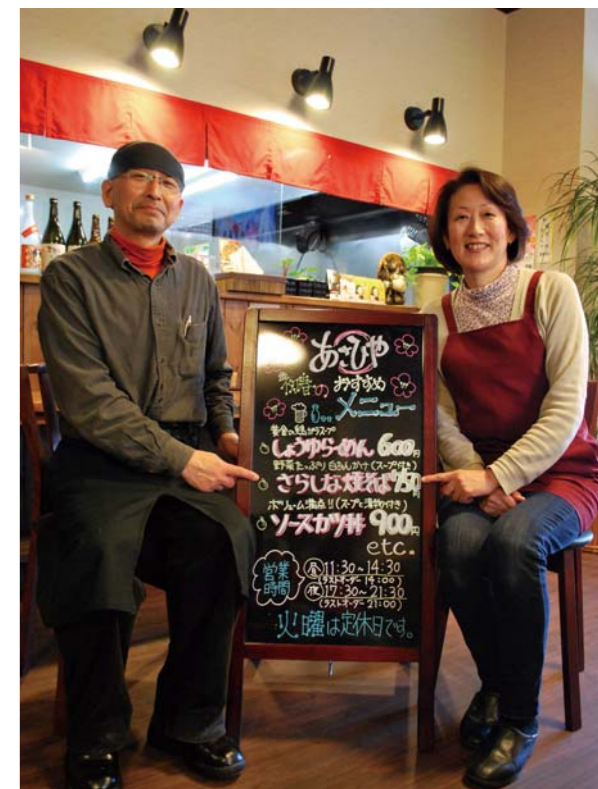 あさひや
のおすすめ
メニュー
黄金の鶏ガラスープ
しょうゆらーめん 600円
野菜たっぷり白あんかけ(スープ付き)
さらしな焼そば 750円
ボリューム満点!!(スープと漬物付き)
ソースカツ丼 900円
etc.
営業時間
昼 11:30~14:30
(ラストオーダー 14:00)
夜 17:30~21:30
(ラストオーダー 21:00)
火曜は定休日です。